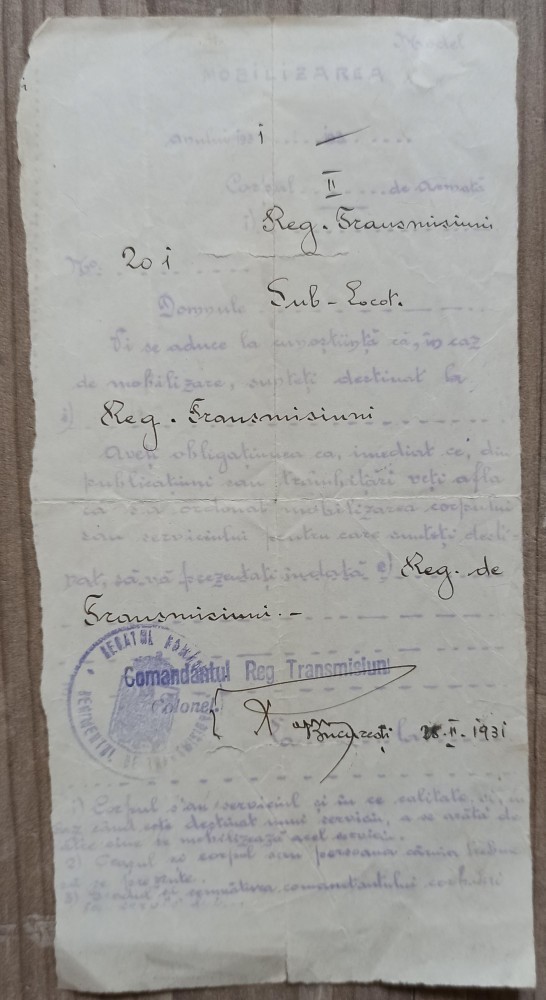 Model
MOBILIZAREA
anului 193 i
Corpul II de Armată
1) Reg. Transmisiuni
No. 20 i
Domnule Sub-Locot.
Vi se aduce la cunoștiință că, în caz
de mobilizare, sunteți destinat la
Reg. Transmisiuni
Aveți obligațiunea ca, imediat ce, din
publicațiuni sau trâmbițări veți afla
că s'a ordonat mobilizarea corpului
sau serviciului pentru care sunteți desti-
nat, să vă prezentați îndată Reg. de
Transmisiuni. -
REGATUL ROMÂN
REGIMENTUL DE TRANSMISIUNI
Comandantul Reg Transmisiuni
Colonel
București 28.II.1931
1) Corpul s'au serviciul și în ce calitate
caz când este destinat unui serviciu, a se arăta de
cine se mobilizează acel serviciu.
2) Orașul corpul sau persoana căreia trebue
să se prezinte.
3) și semnătura comandantului